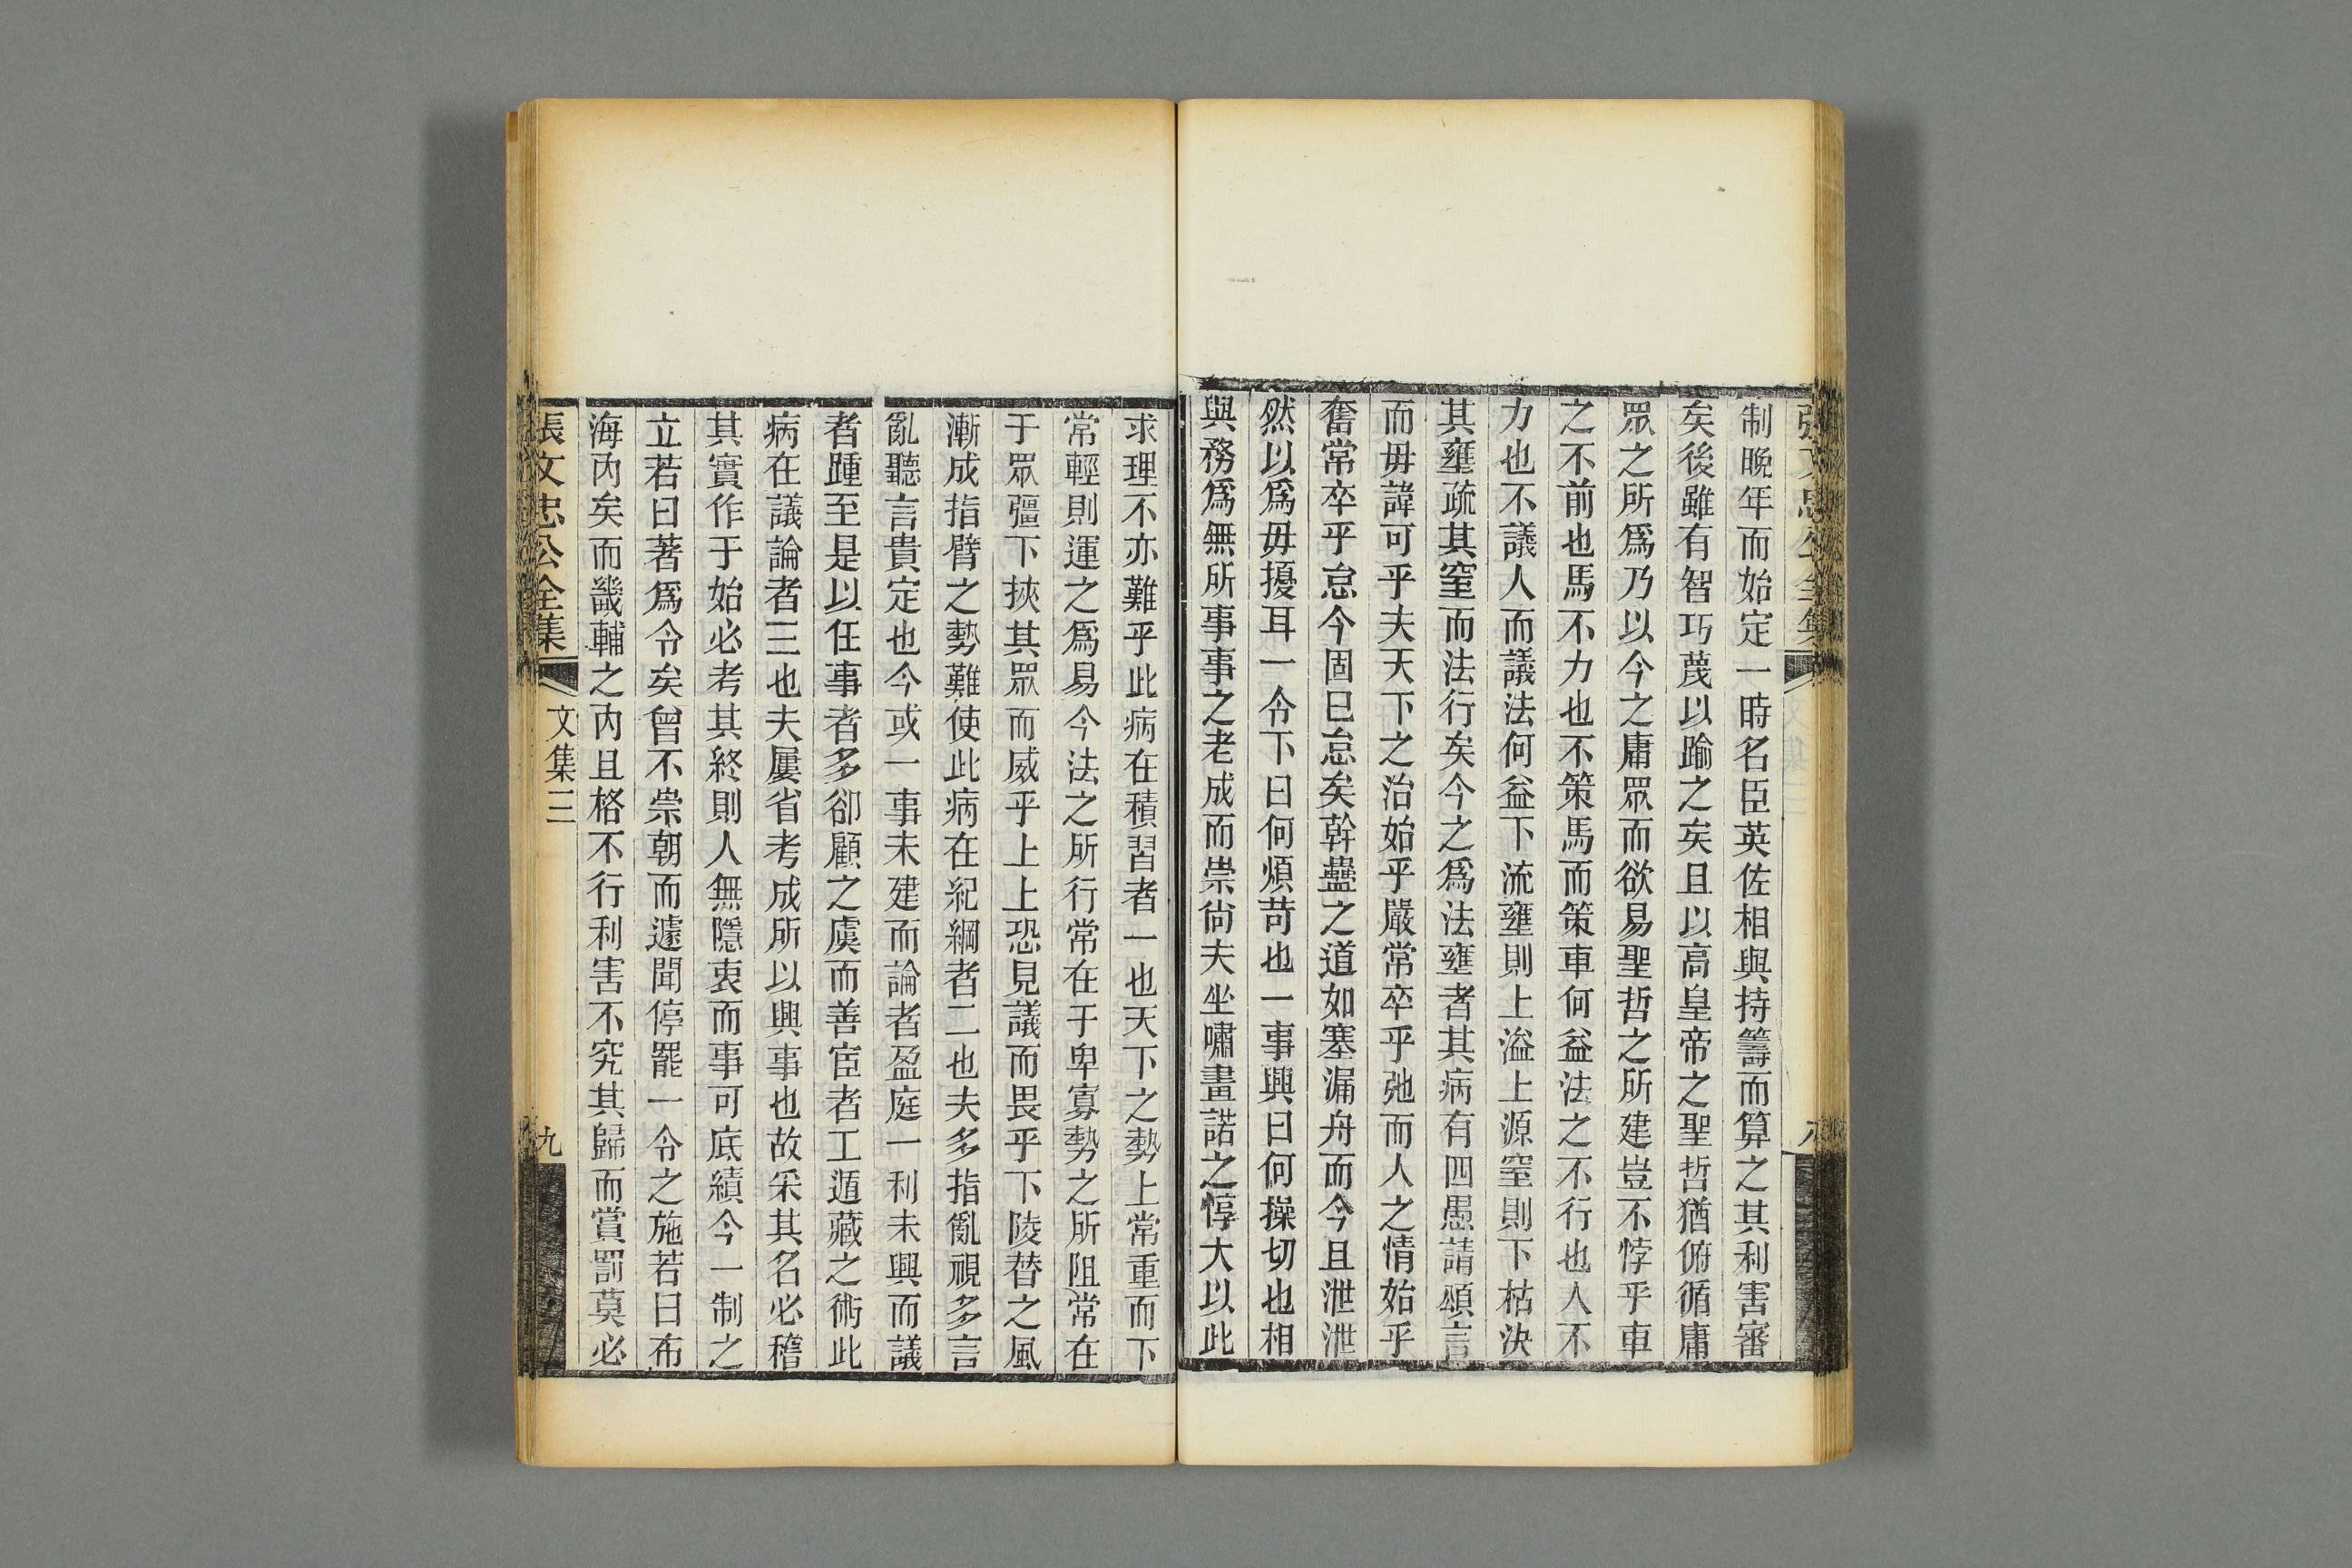 張文忠公全集
文集三
八
制晚年而始定一時名臣英佐相與持籌而算之其利害審
矣後雖有智巧蔑以踰之矣且以高皇帝之聖哲猶俯循庸
眾之所爲乃以今之庸眾而欲易聖哲之所建豈不悖乎車
之不前也馬不力也不策馬而策車何益法之不行也人不
力也不議人而議法何益下流壅則上溢上源窒則下枯決
其壅疏其窒而法行矣今之爲法壅者其病有四愚請頌言
而毋諱可乎夫天下之治始乎嚴常卒乎弛而人之情始乎
奮常卒乎怠今固已怠矣幹蠱之道如塞漏舟而今且泄泄
然以爲毋擾耳一令下曰何煩苛也一事興曰何操切也相
與務爲無所事事之老成而崇尚夫坐嘯畫諾之惇大以此
求理不亦難乎此病在積習者一也天下之勢上常重而下
常輕則運之爲易今法之所行常在于卑寡勢之所阻常在
于眾彊下挾其眾而威乎上上恐見議而畏乎下陵替之風
漸成指臂之勢難使此病在紀綱者二也夫多指亂視多言
亂聽言貴定也今或一事未建而論者盈庭一利未興而議
者踵至是以任事者多卻顧之虞而善宦者工遁藏之術此
病在議論者三也夫屢省考成所以興事也故采其名必稽
其實作于始必考其終則人無隱衷而事可底績今一制之
立若曰著爲令矣曾不崇朝而遽聞停罷一令之施若曰布
海內矣而畿輔之內且格不行利害不究其歸而賞罰莫必
張文忠公全集
文集三
九